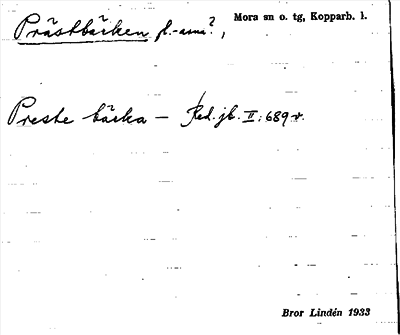 Prästbäcken fl.-anna?, Mora sn o. tg, Kopparb. l.
Preste bäcka — Red. jb. II: 689 v.
Bror Lindén 1933